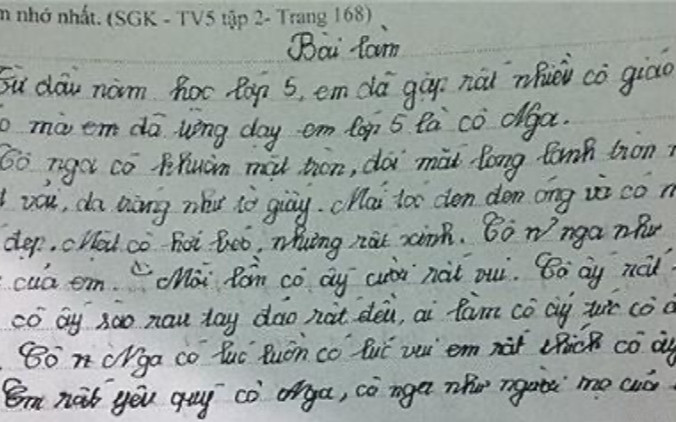 n nhớ nhất. (SGK - TV5 tập 2- Trang 168)
Bài làm
Từ đầu năm học lớp 5, em đã gặp rất nhiều cô giáo
mà em đã từng dạy em lớp 5 là cô Nga.
Cô nga có khuôn mặt tròn, đôi mắt long lanh tròn
da trắng như tờ giấy. Mái tóc đen đen óng và có
đẹp. Mặt cô hơi béo, nhưng rất xinh. Cô n nga như
của em. Mỗi lần cô ấy cười rất vui. Cô ấy rất
cô ấy sào rau tay đảo rất đều, ai làm cô ấy tức cô
Cô n Nga có lúc luôn có lúc vui em rất thích cô ấy
Em rất yêu quý cô Nga, cô nga như người mẹ của